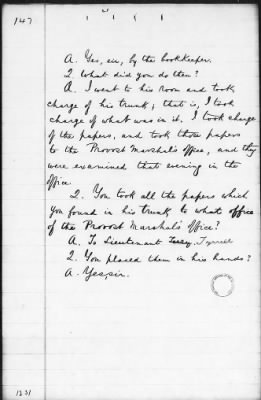 147
A. Yes, sir, by the bookkeeper.
Q. What did you do then?
A. I went to his room and took
charge of his trunk; that is, I took
charge of what was in it. I took charge
of the papers, and took those papers
to the Provost Marshal's office, and they
were examined that evening in the
office.
Q. You took all the papers which
you found in his trunk to what office
of the Provost Marshal's Office?
A. To Lieutenant Terry. Tyrrell
Q. You placed them in his hands?
A. Yes, sir.
1231